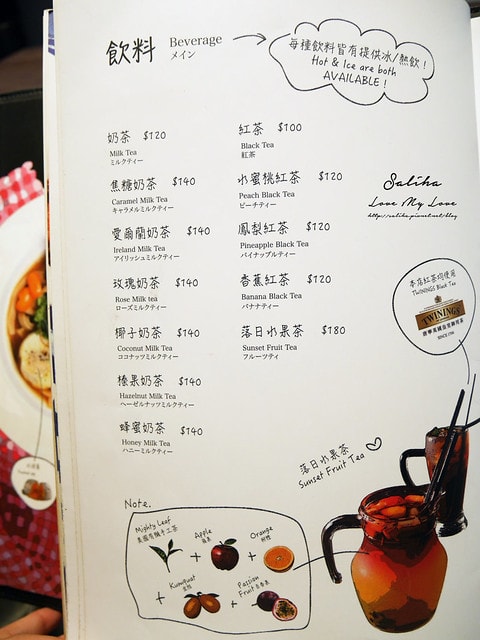 飲料 Beverage
メイン
每種飲料皆有提供冰/熱飲！
Hot & Ice are both
AVAILABLE！
奶茶 $120
Milk Tea
ミルクティー
焦糖奶茶 $140
Caramel Milk Tea
キャラメルミルクティー
愛爾蘭奶茶 $140
Ireland Milk Tea
アイリッシュミルクティー
玫瑰奶茶 $140
Rose Milk tea
ローズミルクティー
椰子奶茶 $140
Coconut Milk Tea
ココナッツミルクティー
榛果奶茶 $140
Hazelnut Milk Tea
ヘーゼルナッツミルクティー
蜂蜜奶茶 $140
Honey Milk Tea
ハニーミルクティー
紅茶 $100
Black Tea
紅茶
水蜜桃紅茶 $120
Peach Black Tea
ピーチティー
鳳梨紅茶 $120
Pineapple Black Tea
パイナップルティー
香蕉紅茶 $120
Banana Black Tea
バナナティー
落日水果茶 $180
Sunset Fruit Tea
フルーツティ
Saliha
Love My Love
http://saliha.pixnet.net/blog
本店紅茶均使用
TWININGS Black Tea
TWININGS
唐寧英國皇室御用茶
SINCE 1706
落日水果茶
Sunset Fruit Tea
Note.
Mighty Leaf
美國有機手工茶
+
Apple
蘋果
+
Orange
柳橙
+
Kumquat
金桔
+
Passion
Fruit 百香果